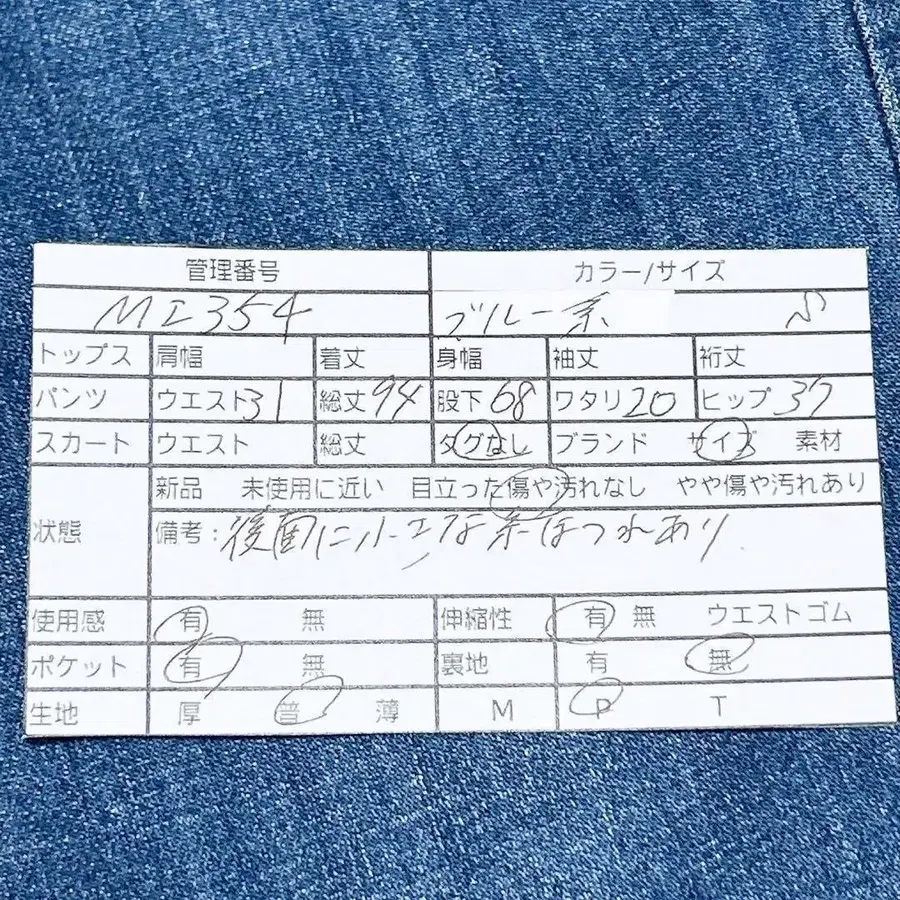 管理番号 カラー/サイズ
MI354 ブルー系 S
トップス 肩幅 着丈 身幅 袖丈 裄丈
パンツ ウエスト31 総丈94 股下68 ワタリ20 ヒップ37
スカート ウエスト 総丈 タグなし ブランド サイズ 素材
状態 新品 未使用に近い 目立った傷や汚れなし やや傷や汚れあり
備考:後面に小さな糸ほつれあり
使用感 有 無 伸縮性 有 無 ウエストゴム
ポケット 有 無 裏地 有 無
生地 厚 普 薄 M P T